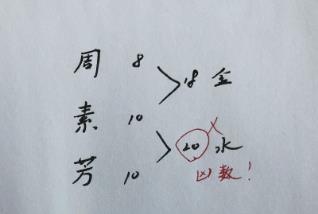 周 8
18 金
素 10
20 水
凶数!
芳 10